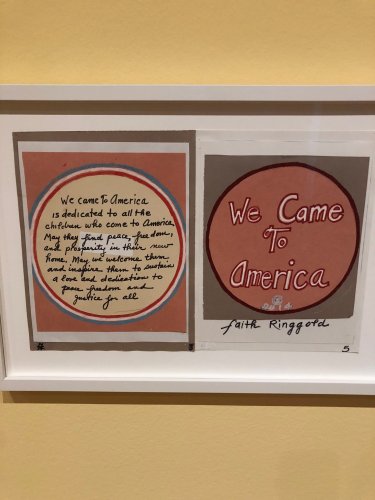 We came To America
is dedicated to all the
children who come to America
May they find peace, freedom,
and prosperity in their new
home. May we welcome them
and inspire them to sustain
a love and dedication to
peace freedom and
justice for all
We Came
To
America
Faith Ringgold
5